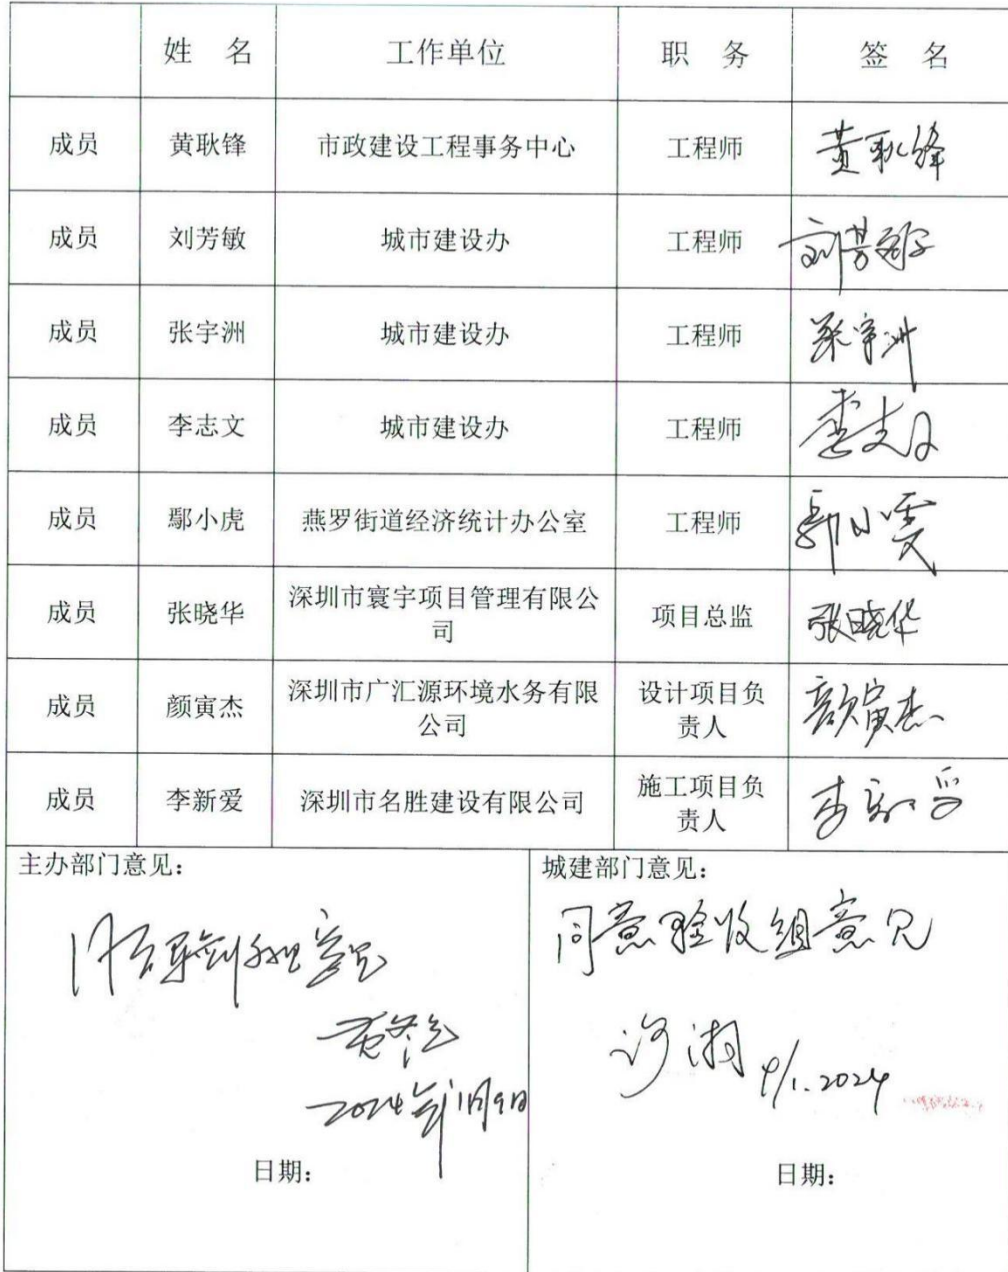 姓 名 工作单位 职 务 签 名
成员 黄耿锋 市政建设工程事务中心 工程师 黄耿锋
成员 刘芳敏 城市建设办 工程师 刘芳敏
成员 张宇洲 城市建设办 工程师 张宇洲
成员 李志文 城市建设办 工程师 李志文
成员 鄢小虎 燕罗街道经济统计办公室 工程师 鄢小虎
成员 张晓华 深圳市寰宇项目管理有限公 项目总监 张晓华
司
成员 颜寅杰 深圳市广汇源环境水务有限 设计项目负 颜寅杰
公司 责人
成员 李新爱 深圳市名胜建设有限公司 施工项目负 李新爱
责人
主办部门意见： 城建部门意见：
同意验收组意见
2024年1月9日
9/1.2024
日期： 日期：